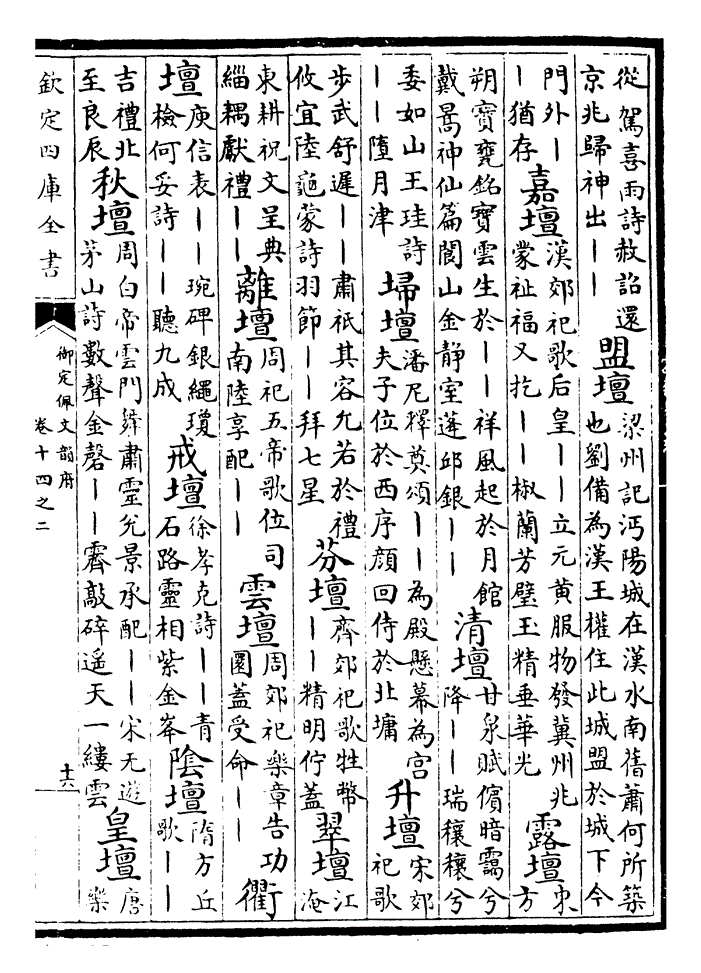 從駕喜雨詩赦詔還
京兆歸神出丨丨
盟壇
梁州記沔陽城在漢水南舊蕭何所築
也劉備為漢王權住此城盟於城下今
門外丨
丨猶存
嘉壇
漢郊祀歌后皇丨丨立元黃服物發冀州兆
蒙祉福又扢丨丨椒蘭芳璧玉精垂華光
露壇
東
方
朔寶甕銘寶雲生於丨丨祥風起於月館
戴暠神仙篇閬山金靜室蓬邱銀丨丨
清壇
甘泉賦儐暗藹兮
降丨丨瑞穰穰兮
委如山王珪詩
丨丨墮月津
埽壇
潘尼釋奠頌丨丨為殿懸幕為宮
夫子位於西序顏回侍於北墉
升壇
宋郊
祀歌
步武舒遲丨丨肅祇其容允若於禮
攸宜陸龜蒙詩羽節丨丨拜七星
芬壇
齊郊祀歌牲幣
丨丨精明佇蓋
翠壇
江
淹
東耕祝文呈典
緇耦獻禮丨丨
離壇
周祀五帝歌位司
南陸享配丨丨
雲壇
周郊祀樂章告功
圜蓋受命丨丨
衢
壇
庾信表丨丨琬碑銀繩瓊
檢何妥詩丨丨聽九成
戒壇
徐孝克詩丨丨青
石路靈相紫金峯
陰壇
隋方丘
歌丨丨
吉禮北
至良辰
秋壇
周白帝雲門舞肅靈兊景承配丨丨宋无遊
茅山詩數聲金磬丨丨霽敲碎遥天一縷雲
皇壇
唐
樂
欽定四庫全書
御定佩文韻府
卷十四之二
十六